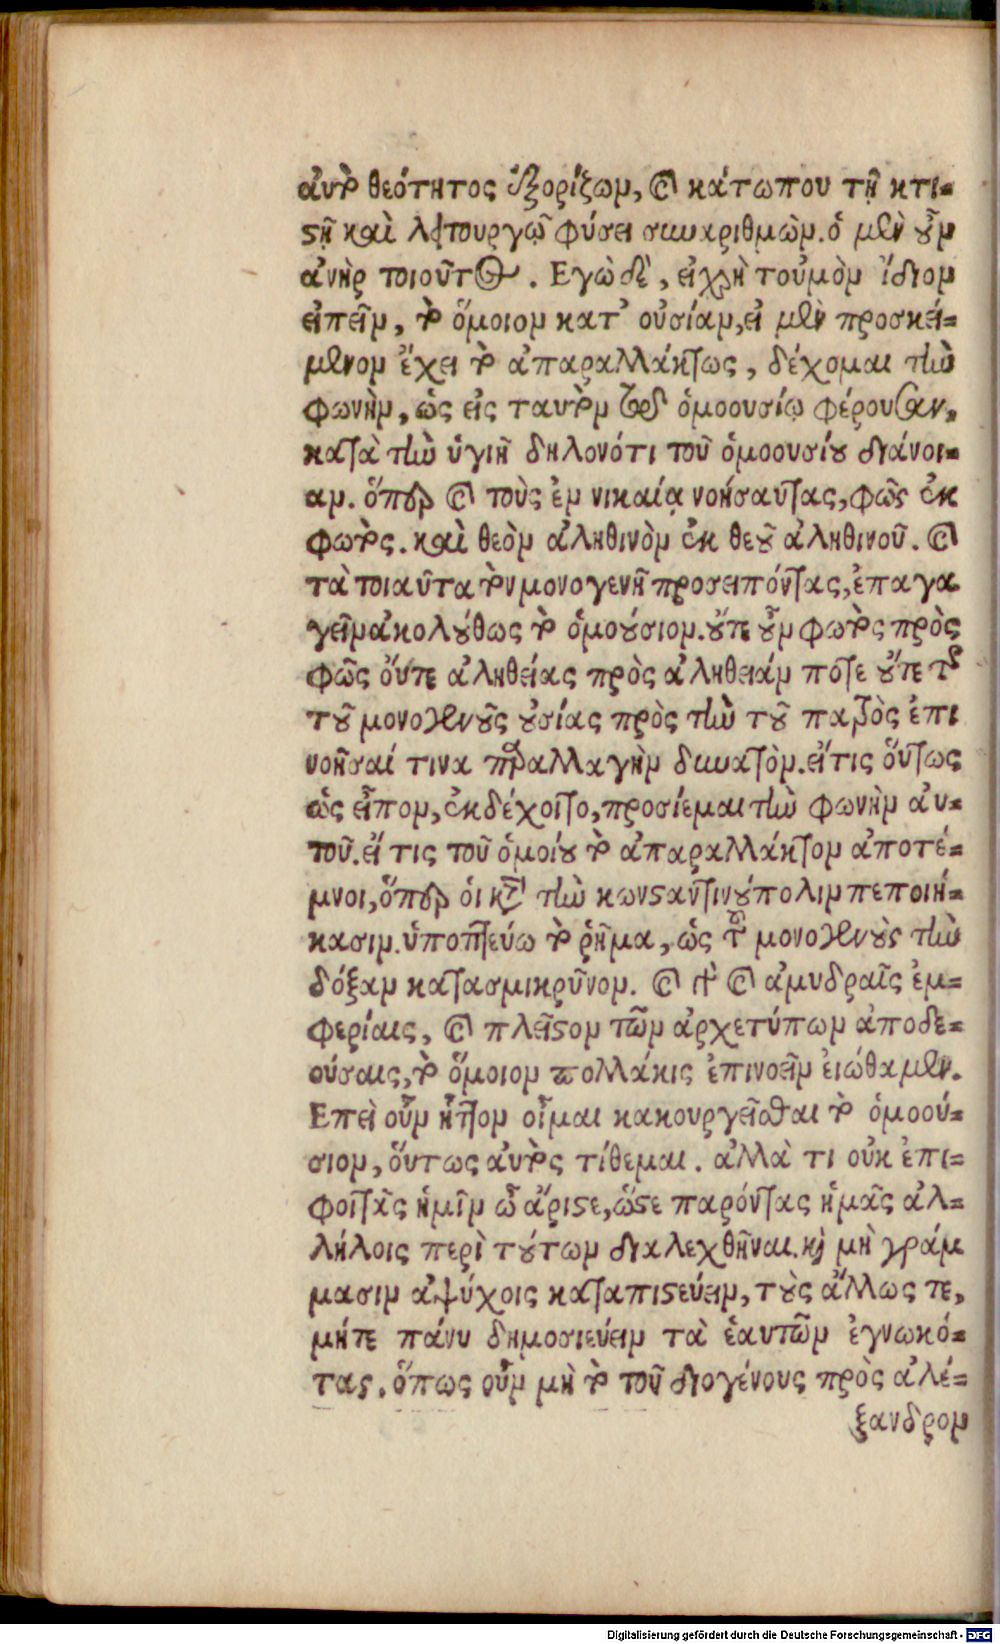 αὐτὸ θεότητος ἐξορίζων, καὶ κάτωπου τῇ κτι-
στῇ καὶ λειτουργῷ φύσει συναριθμῶν. ὁ μὲν οὖν
ἀνὴρ τοιοῦτος. Εγὼ δὲ, εἰ χρὴ τοὐμὸν ἴδιον
εἰπεῖν, τὸ ὅμοιον κατ' οὐσίαν, εἰ μὲν προσκεί-
μενον ἔχει τὸ ἀπαραλλάκτως, δέχομαι τὴν
φωνὴν, ὡς εἰς ταυτὸν τῷ ὁμοουσίῳ φέρουσαν,
κατὰ τὴν ὑγιῆ δηλονότι τοῦ ὁμοουσίου διάνοι-
αν. ὅπερ καὶ τοὺς ἐν νικαίᾳ νοήσαντας, φῶς ἐκ
φωτὸς. καὶ θεὸν ἀληθινὸν ἐκ θεοῦ ἀληθινοῦ. καὶ
τὰ τοιαῦτα τὸν μονογενῆ προσειπόντας, ἐπαγα
γεῖν ἀκολούθως τὸ ὁμούσιον. οὔτε οὖν φωτὸς πρὸς
φῶς οὔτε ἀληθείας πρὸς ἀληθειάν ποτε οὔτε τῆς
τοῦ μονογενοῦς οὐσίας πρὸς τὴν τοῦ πατρὸς ἐπι
νοῆσαί τινα παραλλαγὴν δυνατὸν. εἴτις οὕτως
ὡς εἶπον, ἐκδέχοιτο, προσίεμαι τὴν φωνὴν αὐ-
τοῦ. εἴ τις τοῦ ὁμοίου τὸ ἀπαράλλακτον ἀποτέ-
μνοι, ὅπερ οἱ κατὰ τὴν κωνσαντινούπολιν πεποιή-
κασιν. ὑποπτεύω τὸ ῥῆμα, ὡς τοῦ μονογενοὺς τὴν
δόξαν κατασμικρῦνον. καὶ γὰρ καὶ ἀμυδραῖς ἐμ-
φερίαις, καὶ πλεῖστον τῶν ἀρχετύπων ἀποδε-
ούσαις, τὸ ὅμοιον πολλάκις ἐπινοεῖν ἐιώθαμεν.
Επεὶ οὖν ἧττον οἶμαι κακουργεῖσθαι τὸ ὁμοού-
σιον, ὅυτως αὐτὸς τίθεμαι. ἀλλὰ τι οὐκ ἐπι-
φοιτᾶς ἡμῖν ὦ ἄριστε, ὥστε παρόντας ἡμᾶς ἀλ-
λήλοις περὶ τούτων διαλεχθῆναι. καὶ μὴ γράμ
μασιν ἀψύχοις καταπιστεύειν, τοὺς ἄλλως τε,
μήτε πάνυ δημοσιεύειν τὰ ἑαυτῶν ἐγνωκό-
τας. ὅπως οὖν μὴ τὸ τοῦ διογένους πρὸς ἀλέ-
ξανδρον
Digitalisierung gefördert durch die Deutsche Forschungsgemeinschaft - DFG